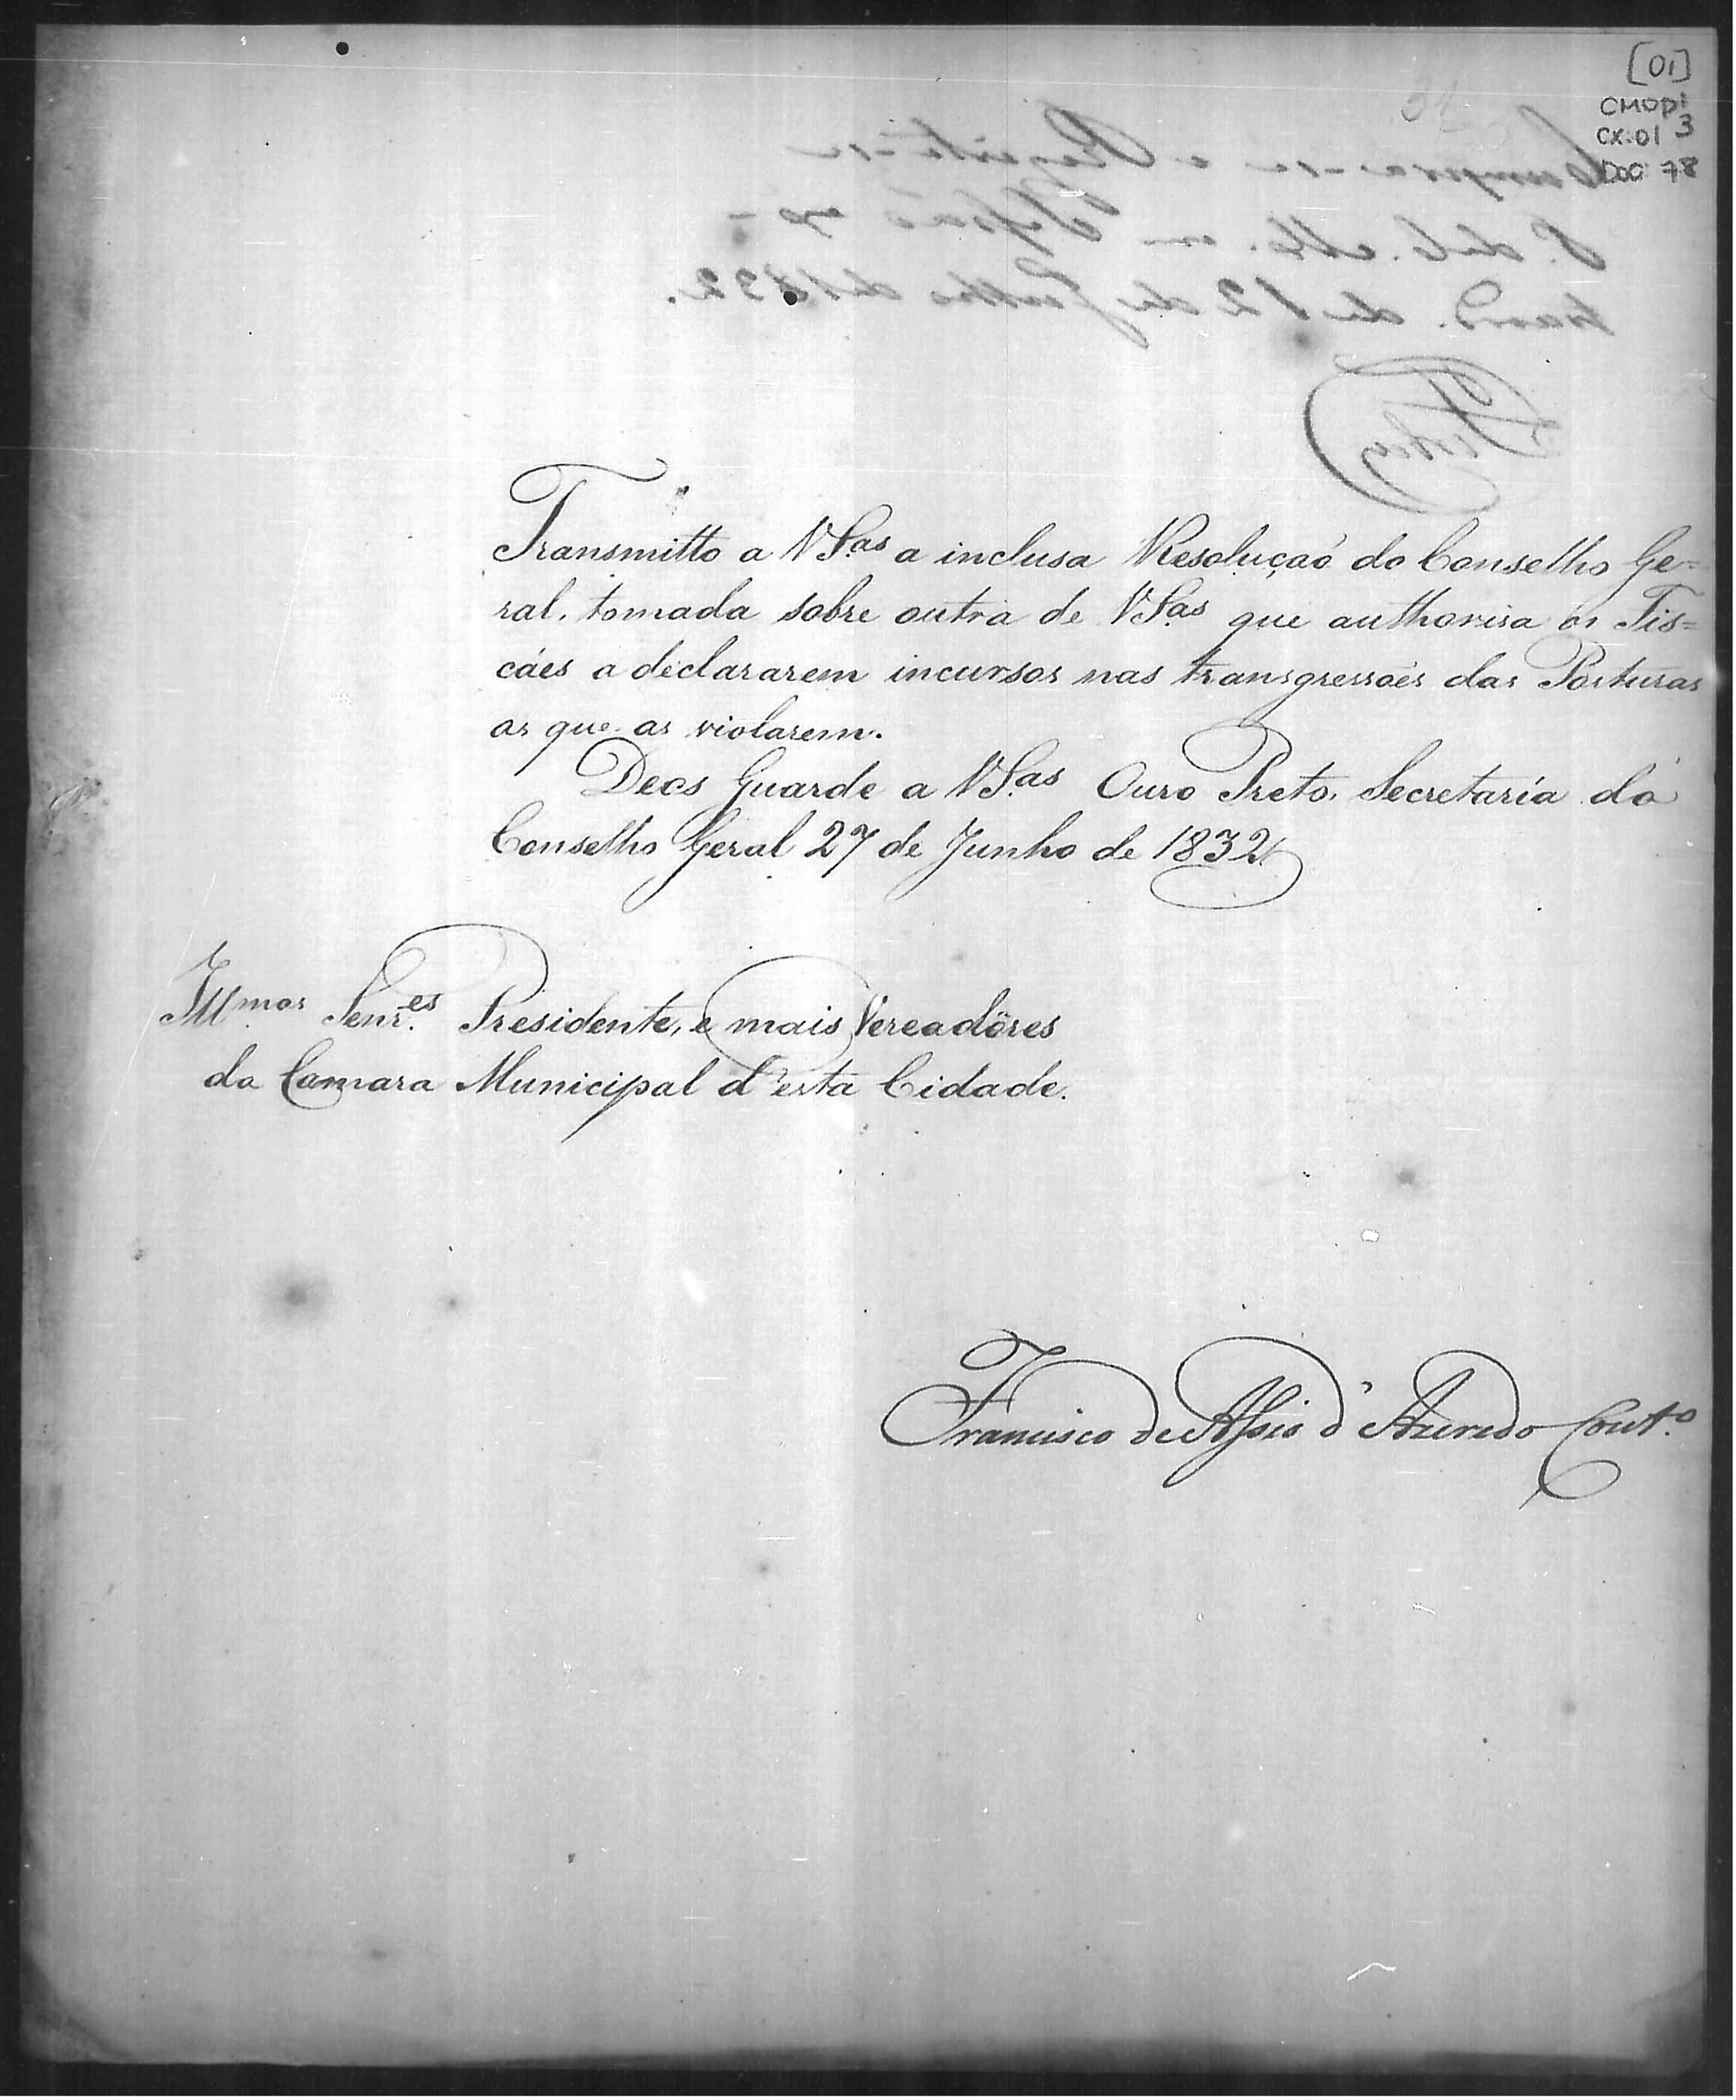 [01]
CMOP
CX.01 3
DOC 78
Cumpra-se e Registe-se
Transmitto a V S.as a inclusa Resoluçaõ do Conselho Ge=
ral, tomada sobre outra de V S.as que authorisa os Fis=
cáes a declararem incursos nas transgressoẽs das Posturas
os que as violarem.
Deos Guarde a V S.as Ouro Preto, Secretaría do
Conselho Geral 27 de Junho de 1832
Illmos Senr.es Presidente, e mais Vereadores
da Camara Municipal d'esta Cidade.
Francisco de Assis d'Azeredo Cout.o